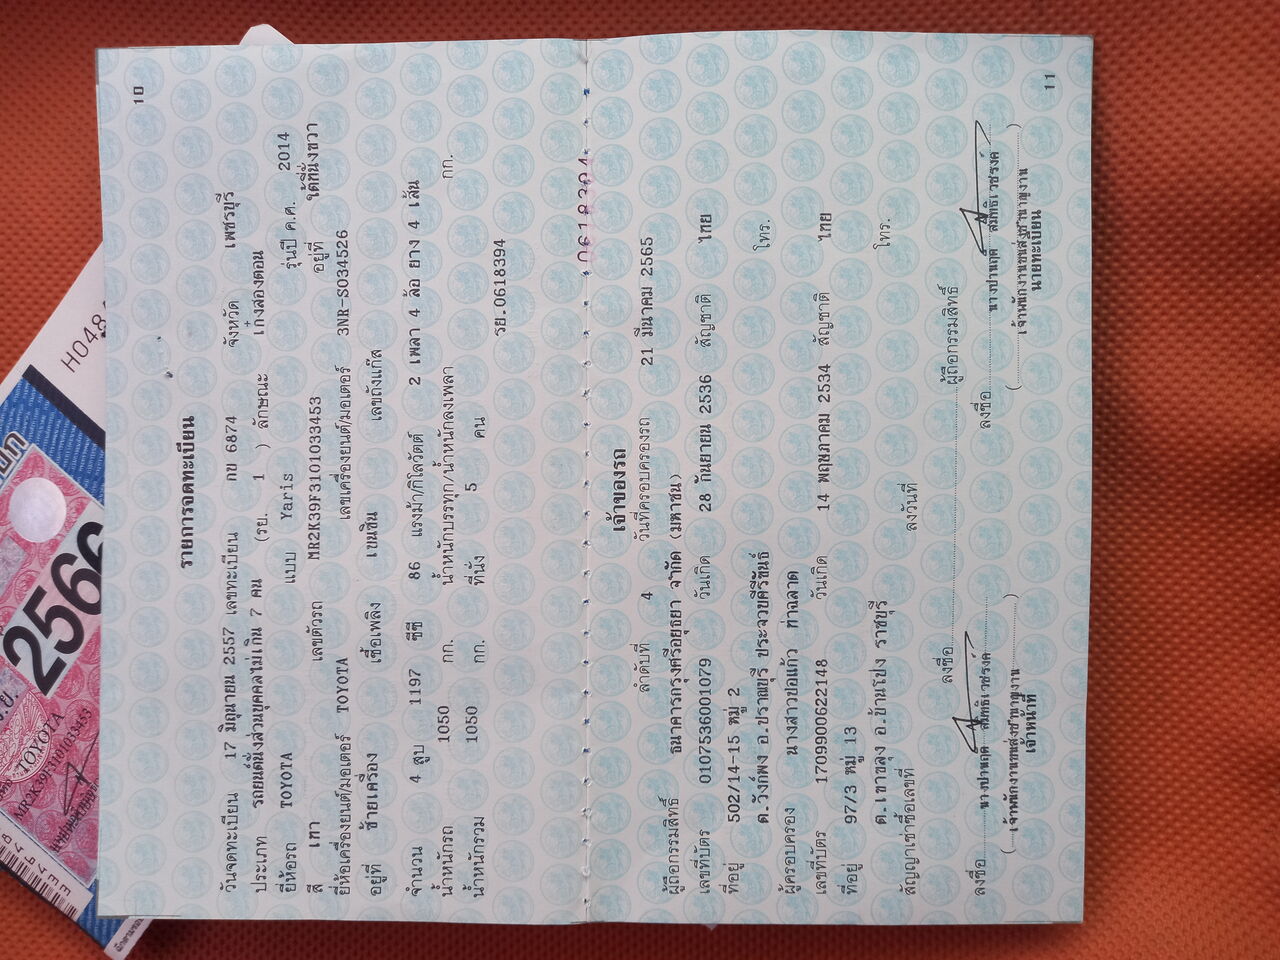 10
รายการจดทะเบียน
วันจดทะเบียน 17 มิถุนายน 2557 เลขทะเบียน กข 6874 จังหวัด เพชรบุรี
ประเภท รถยนต์นั่งส่วนบุคคลไม่เกิน 7 คน (รย. 1 ) ลักษณะ เก๋งสองตอน
ยี่ห้อรถ TOYOTA แบบ Yaris รุ่นปี ค.ศ. 2014
สี เทา เลขตัวรถ MR2K39F3101033453 อยู่ที่ ใต้ที่นั่งขวา
ยี่ห้อเครื่องยนต์/มอเตอร์ TOYOTA เลขเครื่องยนต์/มอเตอร์ 3NR-S034526
อยู่ที่ ซ้ายเครื่อง เชื้อเพลิง เบนซิน เลขถังแก๊ส
จำนวน 4 สูบ 1197 ซีซี 86 แรงม้า/กิโลวัตต์ 2 เพลา 4 ล้อ ยาง 4 เส้น
น้ำหนักรถ 1050 กก. น้ำหนักบรรทุก/น้ำหนักลงเพลา กก.
น้ำหนักรวม 1050 กก. ที่นั่ง 5 คน
รย.0618394
เจ้าของรถ
ลำดับที่ 4 วันที่ครอบครองรถ 21 มีนาคม 2565
ผู้ถือกรรมสิทธิ์ ธนาคารกรุงศรีอยุธยา จำกัด (มหาชน)
เลขที่บัตร 0107536001079 วันเกิด 28 กันยายน 2536 สัญชาติ ไทย
ที่อยู่ 502/14-15 หมู่ 2 โทร.
ต.วังก์พง อ.ปราณบุรี ประจวบคีรีขันธ์
ผู้ครอบครอง นางสาวปอแก้ว ท่าฉลาด
เลขที่บัตร 1709900622148 วันเกิด 14 พฤษภาคม 2534 สัญชาติ ไทย
ที่อยู่ 97/3 หมู่ 13 โทร.
ต.เขาขลุง อ.บ้านโป่ง ราชบุรี
สัญญาเช่าซื้อเลขที่ ลงวันที่
ลงชื่อ ผู้ถือกรรมสิทธิ์
ลงชื่อ นางปานฤดี สมิทธิเวชรงค์ ลงชื่อ นางปานฤดี สมิทธิเวชรงค์
(เจ้าพนักงานขนส่งชำนาญงาน) (เจ้าพนักงานขนส่งชำนาญงาน)
เจ้าหน้าที่ นายทะเบียน
11
2566
TOYOTA
MR2K39F3101033453